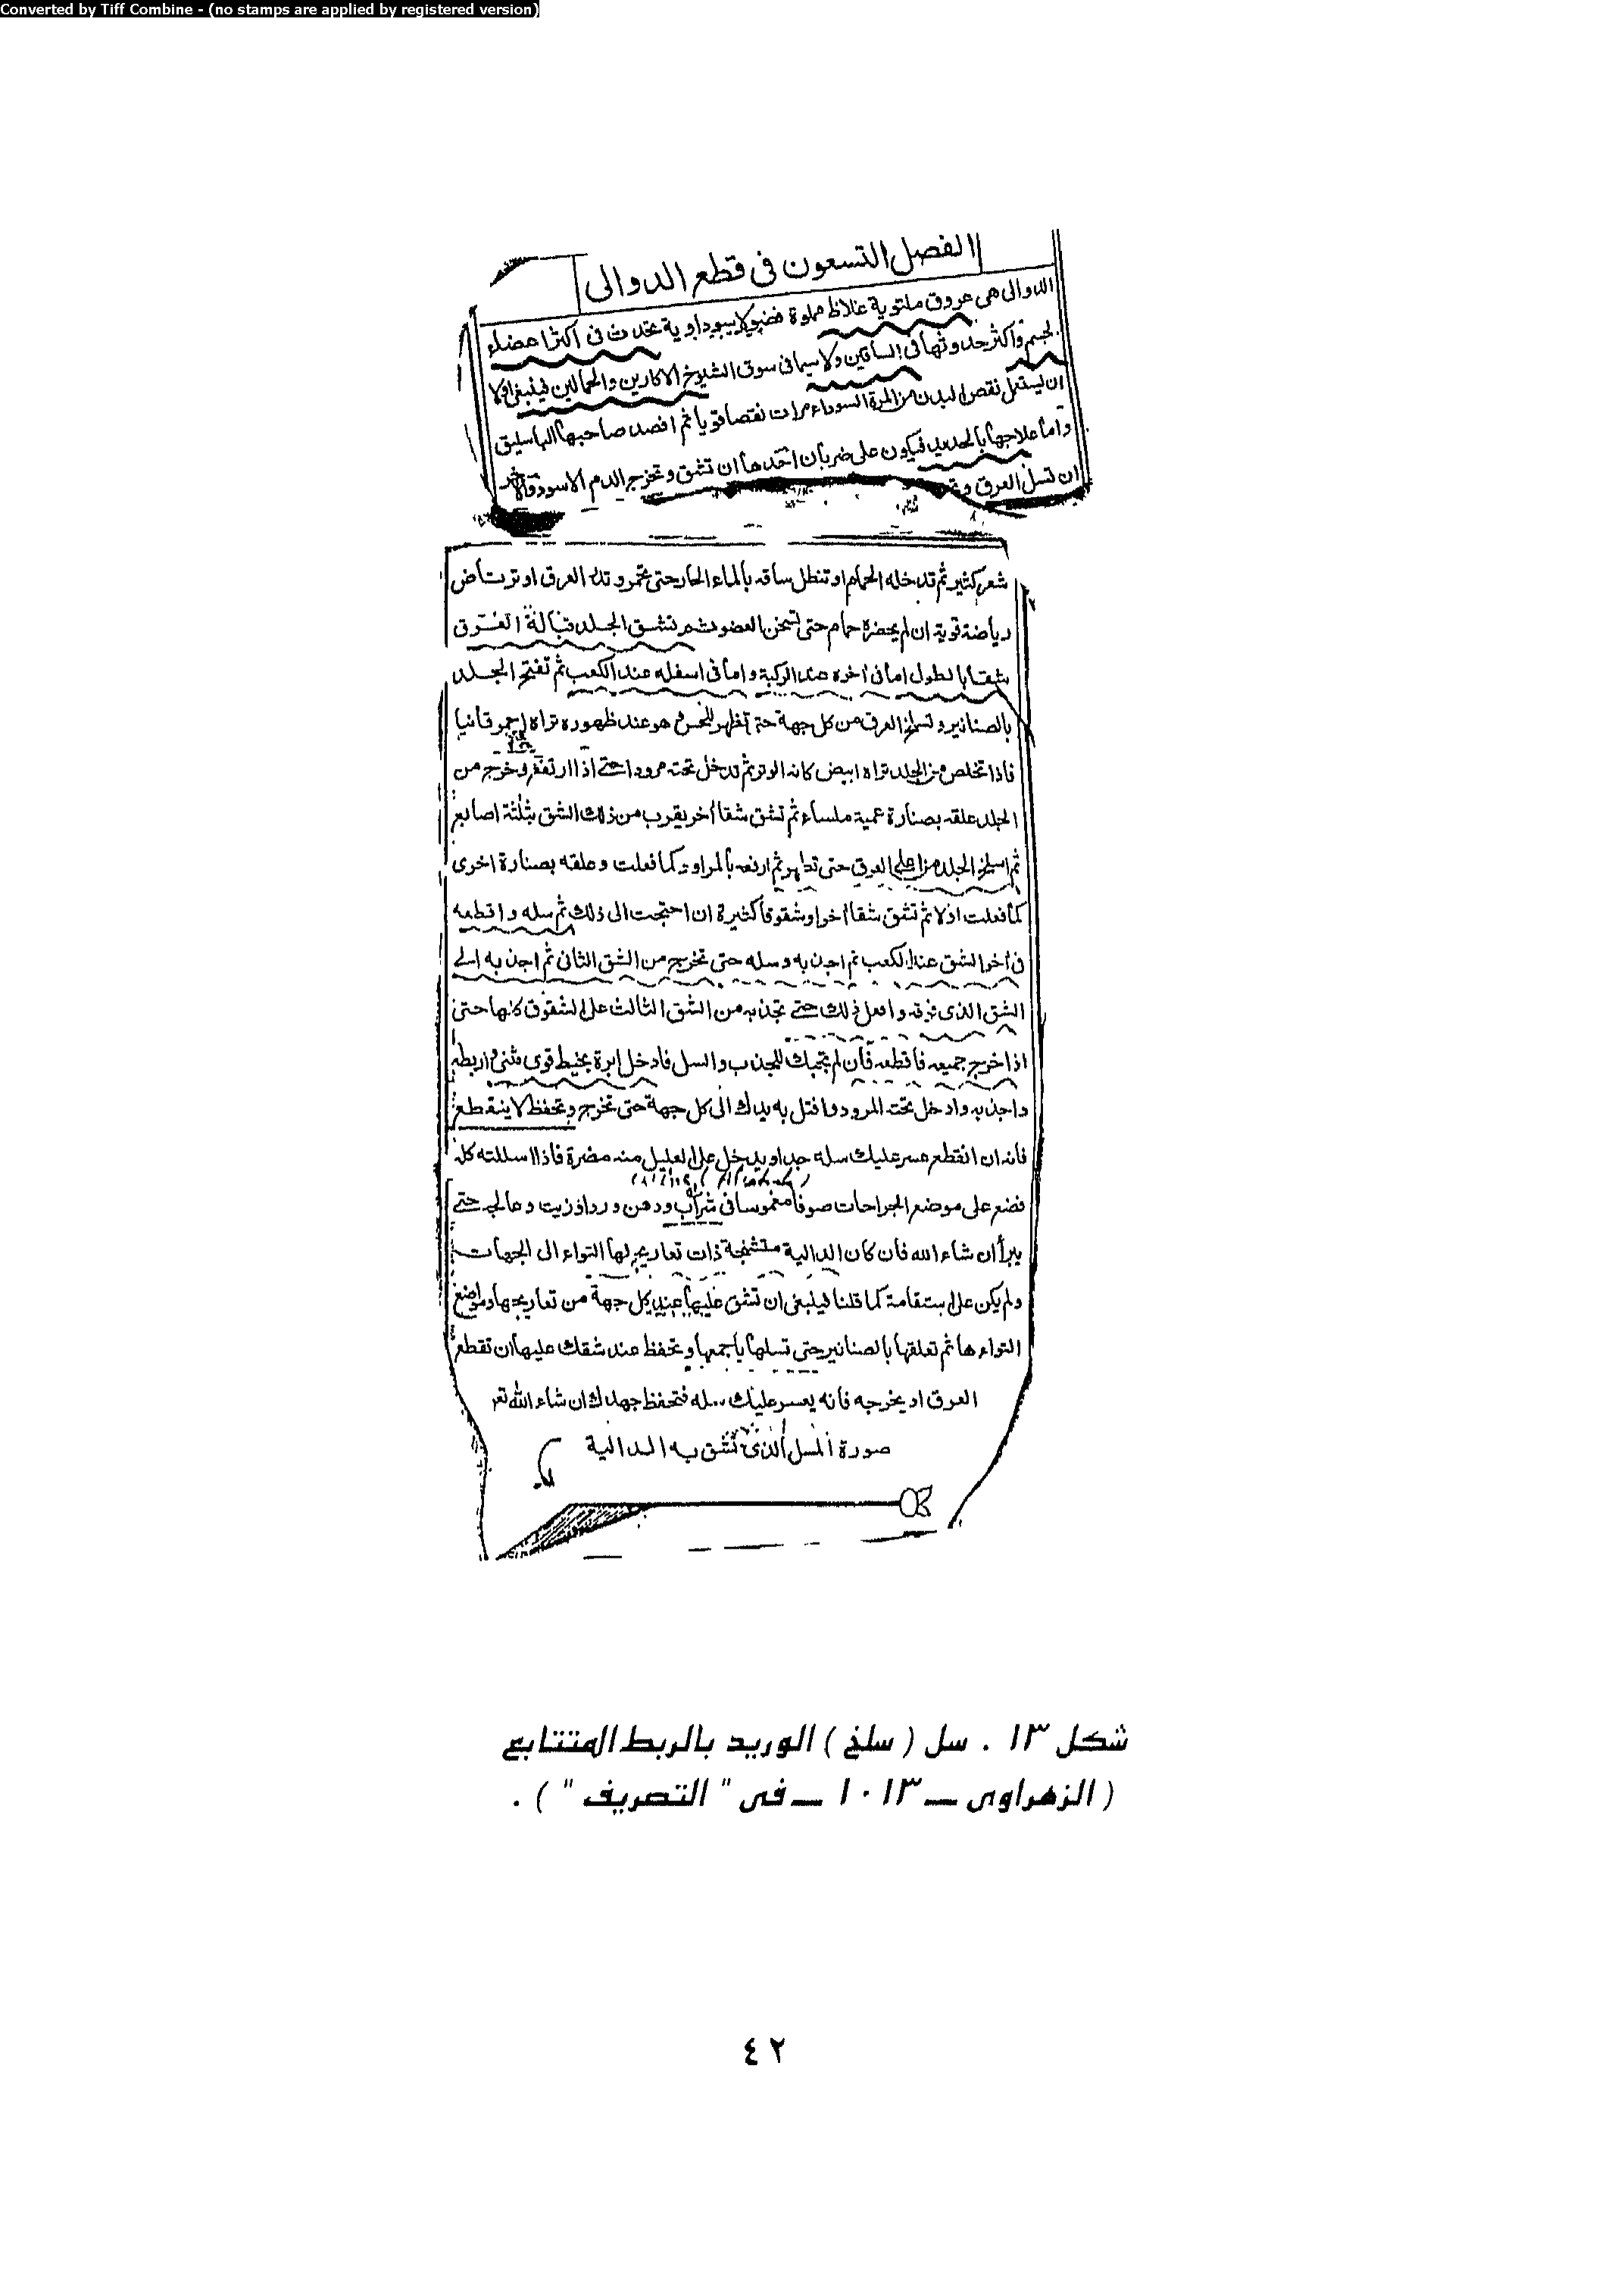 Converted by Tiff Combine - (no stamps are applied by registered version)
الفصل التسعون فى قطع الدوالى
الدوالى هى عروق ملتوية غلاظ مملوة فضولا سوداوية تحدث فى اكثر اعضاء
الجسم واكثر حدوثها فى الساقين ولا سيما فى سوق الشيوخ الاكارين والحمالين فينبغى اولا
ان يستعمل نقص البدن من المرة السوداء مرات نقصا قويا ثم افصد صاحبها الباسليق
واما علاجها بالحديد فيكون على ضربان احدها ان تشق وتخرج الدم الاسود
ان تسل العرق
شعر كثير ثم تدخله الحمام او تنطل ساقه بالماء الحار حتى تحمر وتدر العرق او ترتاض
رياضة قوية ان لم يحضره حمام حتى تسخن العضو ثم تشق الجلد قبالة العرق
شقا بالطول اما فى اخره عند الركبة واما فى اسفله عند الكعب ثم تفتح الجلد
بالصنانير وتسلخ العرق من كل جهة حتى تظهر للحس وهو عند ظهوره تراه احمر قانيا
فاذا تخلص من الجلد تراه ابيض كانه الوتر ثم تدخل تحته مرودا حتى اذا ارتفع وخرج من
الجلد علقه بصنارة عمية ملساء ثم تشق شقا اخر يقرب من ذلك الشق بثلثة اصابع
ثم اسلخ الجلد من اعلى العرق حتى تظهر ثم ارفعه بالمراود كما فعلت وعلقه بصنارة اخرى
كما فعلت اولا ثم تشق شقا اخر او شقوقا كثيرة ان احتجت الى ذلك ثم سله واقطعه
فى اخر الشق عند الكعب ثم اجذبه وسله حتى تخرج من الشق الثانى ثم اجذبه الى
الشق الذى فوقه وافعل ذلك حتى تجذبه من الشق الثالث على الشقوق كلها حتى
اذا خرج جميعه فاقطعه فان لم يجبك للجذب والسل فادخل ابرة بخيط قوى مثنى واربطه
واجذبه وادخل تحت المرود وافتل به يدك الى كل جهة حتى تخرج وتحفظ لا ينقطع
فانه ان انقطع عسر عليك سله جدا ويدخل على العليل منه مضرة فاذا اسللته كله
فضع على موضع الجراحات صوفا مغموسا فى شراب ودهن ورد او زيت وعالجه حتى
يبرأ ان شاء الله فان كان الدالية متشنجة ذات تعاريج لها التواء الى الجهات
ولم يكن على استقامة كما قلنا فينبغى ان تشق عليها عند كل جهة من تعاريجها ومواضع
التواءها ثم تعلقها بالصنانير حتى تسلها باجمعها وتحفظ عند شقك عليها ان تقطع
العرق او يخرجه فانه يعسر عليك سله فتحفظ جهدك ان شاء الله تع
صورة المسل الذى تشق به الدالية
شكل ١٣ . سل ( سلخ ) الوريد بالربط المتتابع
( الزهراوى — ١٠١٣ — فى " التصريف " ) .
٤٢